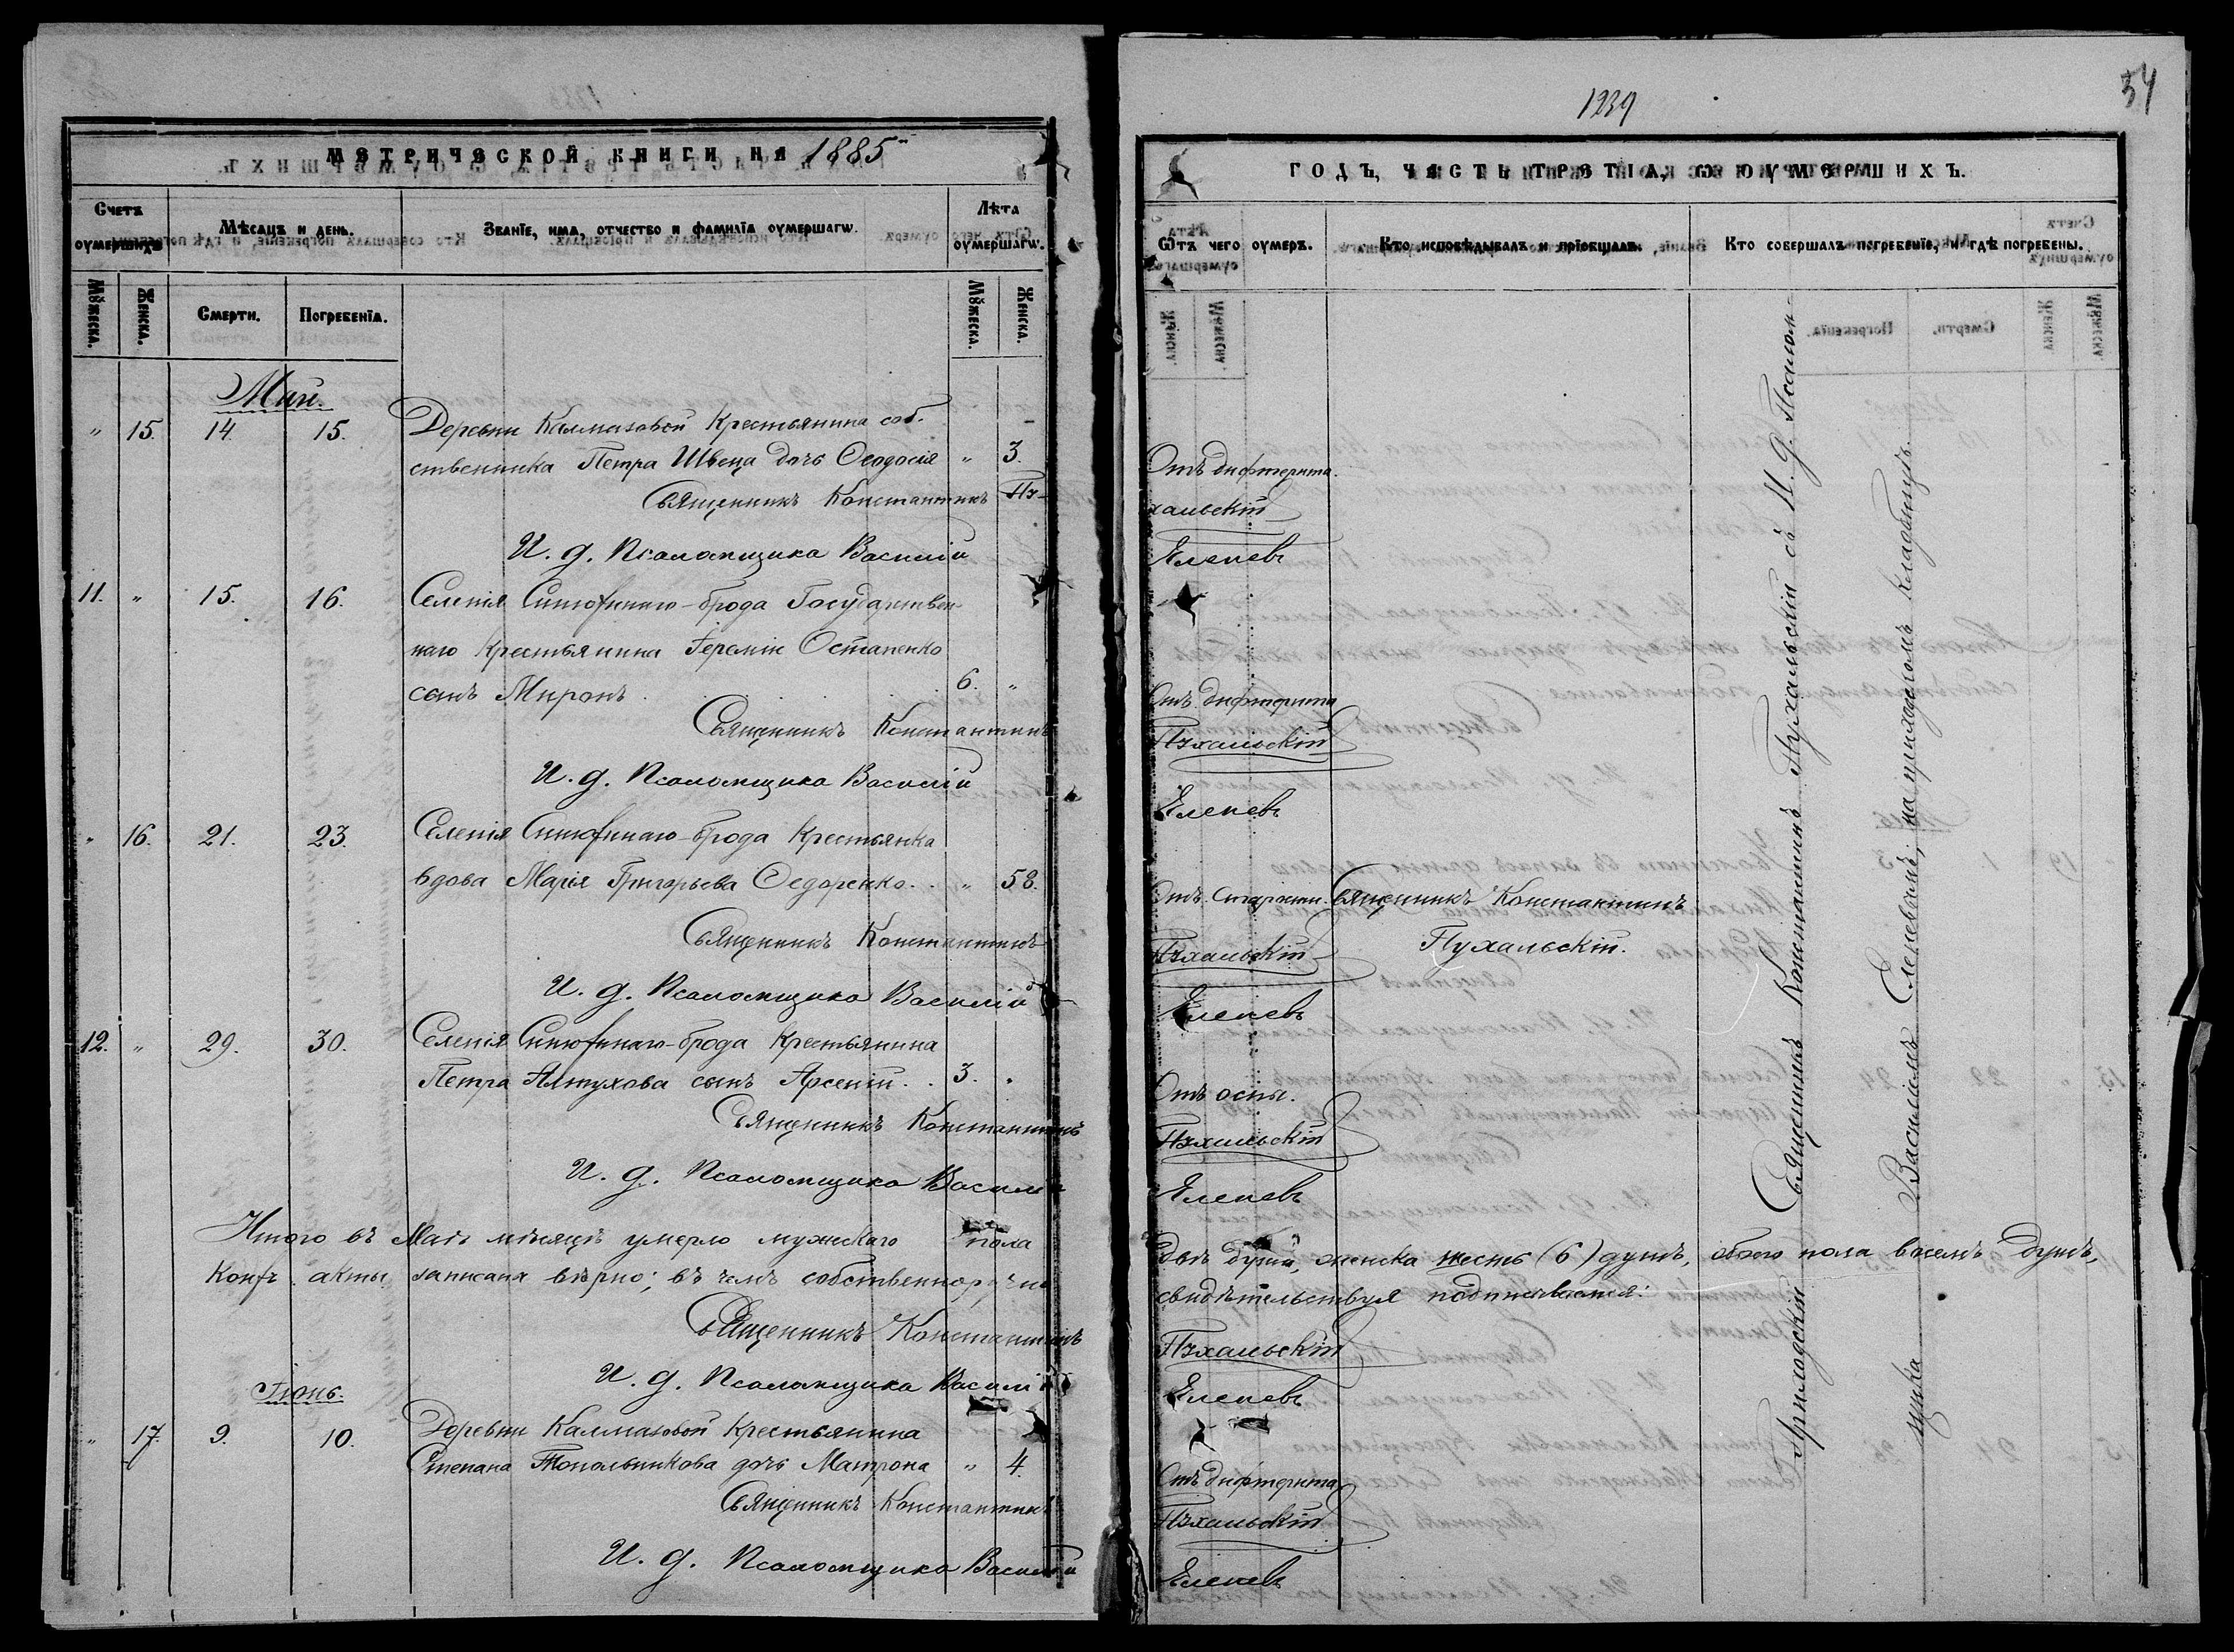 МЕТРИЧЕСКОЙ КНИГИ НА 1885
Счетъ оумершихъ
Мѣсяцъ и день.
Званїе, имѧ, отчество и фамилїѧ оумершагѡ.
Лѣта оумершагѡ.
Мꙋжеска.
Женска.
Смерти.
Погребенїѧ.
Мꙋжеска.
Женска.
Май.
" 15. 14. 15. Деревни Калмазовой крестьянина соб-
ственника Петра Швеца дочь Ѳеодосія " 3.
Священникъ Константинъ Пу-
И. д. Псаломщика Василій
11. " 15. 16. Селенія Синюхинаго-брода Государствен-
наго крестьянина Іереміи Остапенко
сынъ Миронъ 6. "
Священникъ Константинъ
И. д. Псаломщика Василій
" 16. 21. 23. Селенія Синюхинаго-брода крестьянка
вдова Марія Григорьева Ѳедоренко. " 58.
Священникъ Константинъ
И. д. Псаломщика Василій
12. " 29. 30. Селенія Синюхинаго-брода крестьянина
Петра Алтухова сынъ Арсеній. 3. "
Священникъ Константинъ
И. д. Псаломщика Василій
Итого въ Маѣ мѣсяцѣ умерло мужскаго пола
акты записаны вѣрно; въ чемъ собственноручно
Священникъ Константинъ
И. д. Псаломщика Василій
Іюнь.
" 17. 9. 10. Деревни Калмазовой крестьянина
Степана Топольникова дочь Матрона " 4.
Священникъ Константинъ
И. д. Псаломщика Василій
1239
54
ГОДЪ, ЧАСТЬ ТРЕТЇѦ, Ѡ ОУМЕРШИХЪ.
Ѿтъ чего оумеръ.
Кто исповѣдывалъ и прїобщалъ.
Кто совершалъ погребенїе, и гдѣ погребены.
Отъ дифтерита.
хальскій
Еленевъ
Отъ дифтерита
Пухальскій
Еленевъ
Отъ старости. Священникъ Константинъ
Пухальскій Пухальскій.
Еленевъ
Отъ оспы.
Пухальскій
Еленевъ
двѣ души, женска шесть (6) душъ, обоего пола восемь душъ,
свидѣтельствуя подписываемся:
Пухальскій
Еленевъ
Отъ дифтерита
Пухальскій
Еленевъ
Приходскій Священникъ Константинъ Пухальскій съ И. д. Псалом-
щика Василіемъ Еленевымъ, на приходскомъ кладбищѣ.